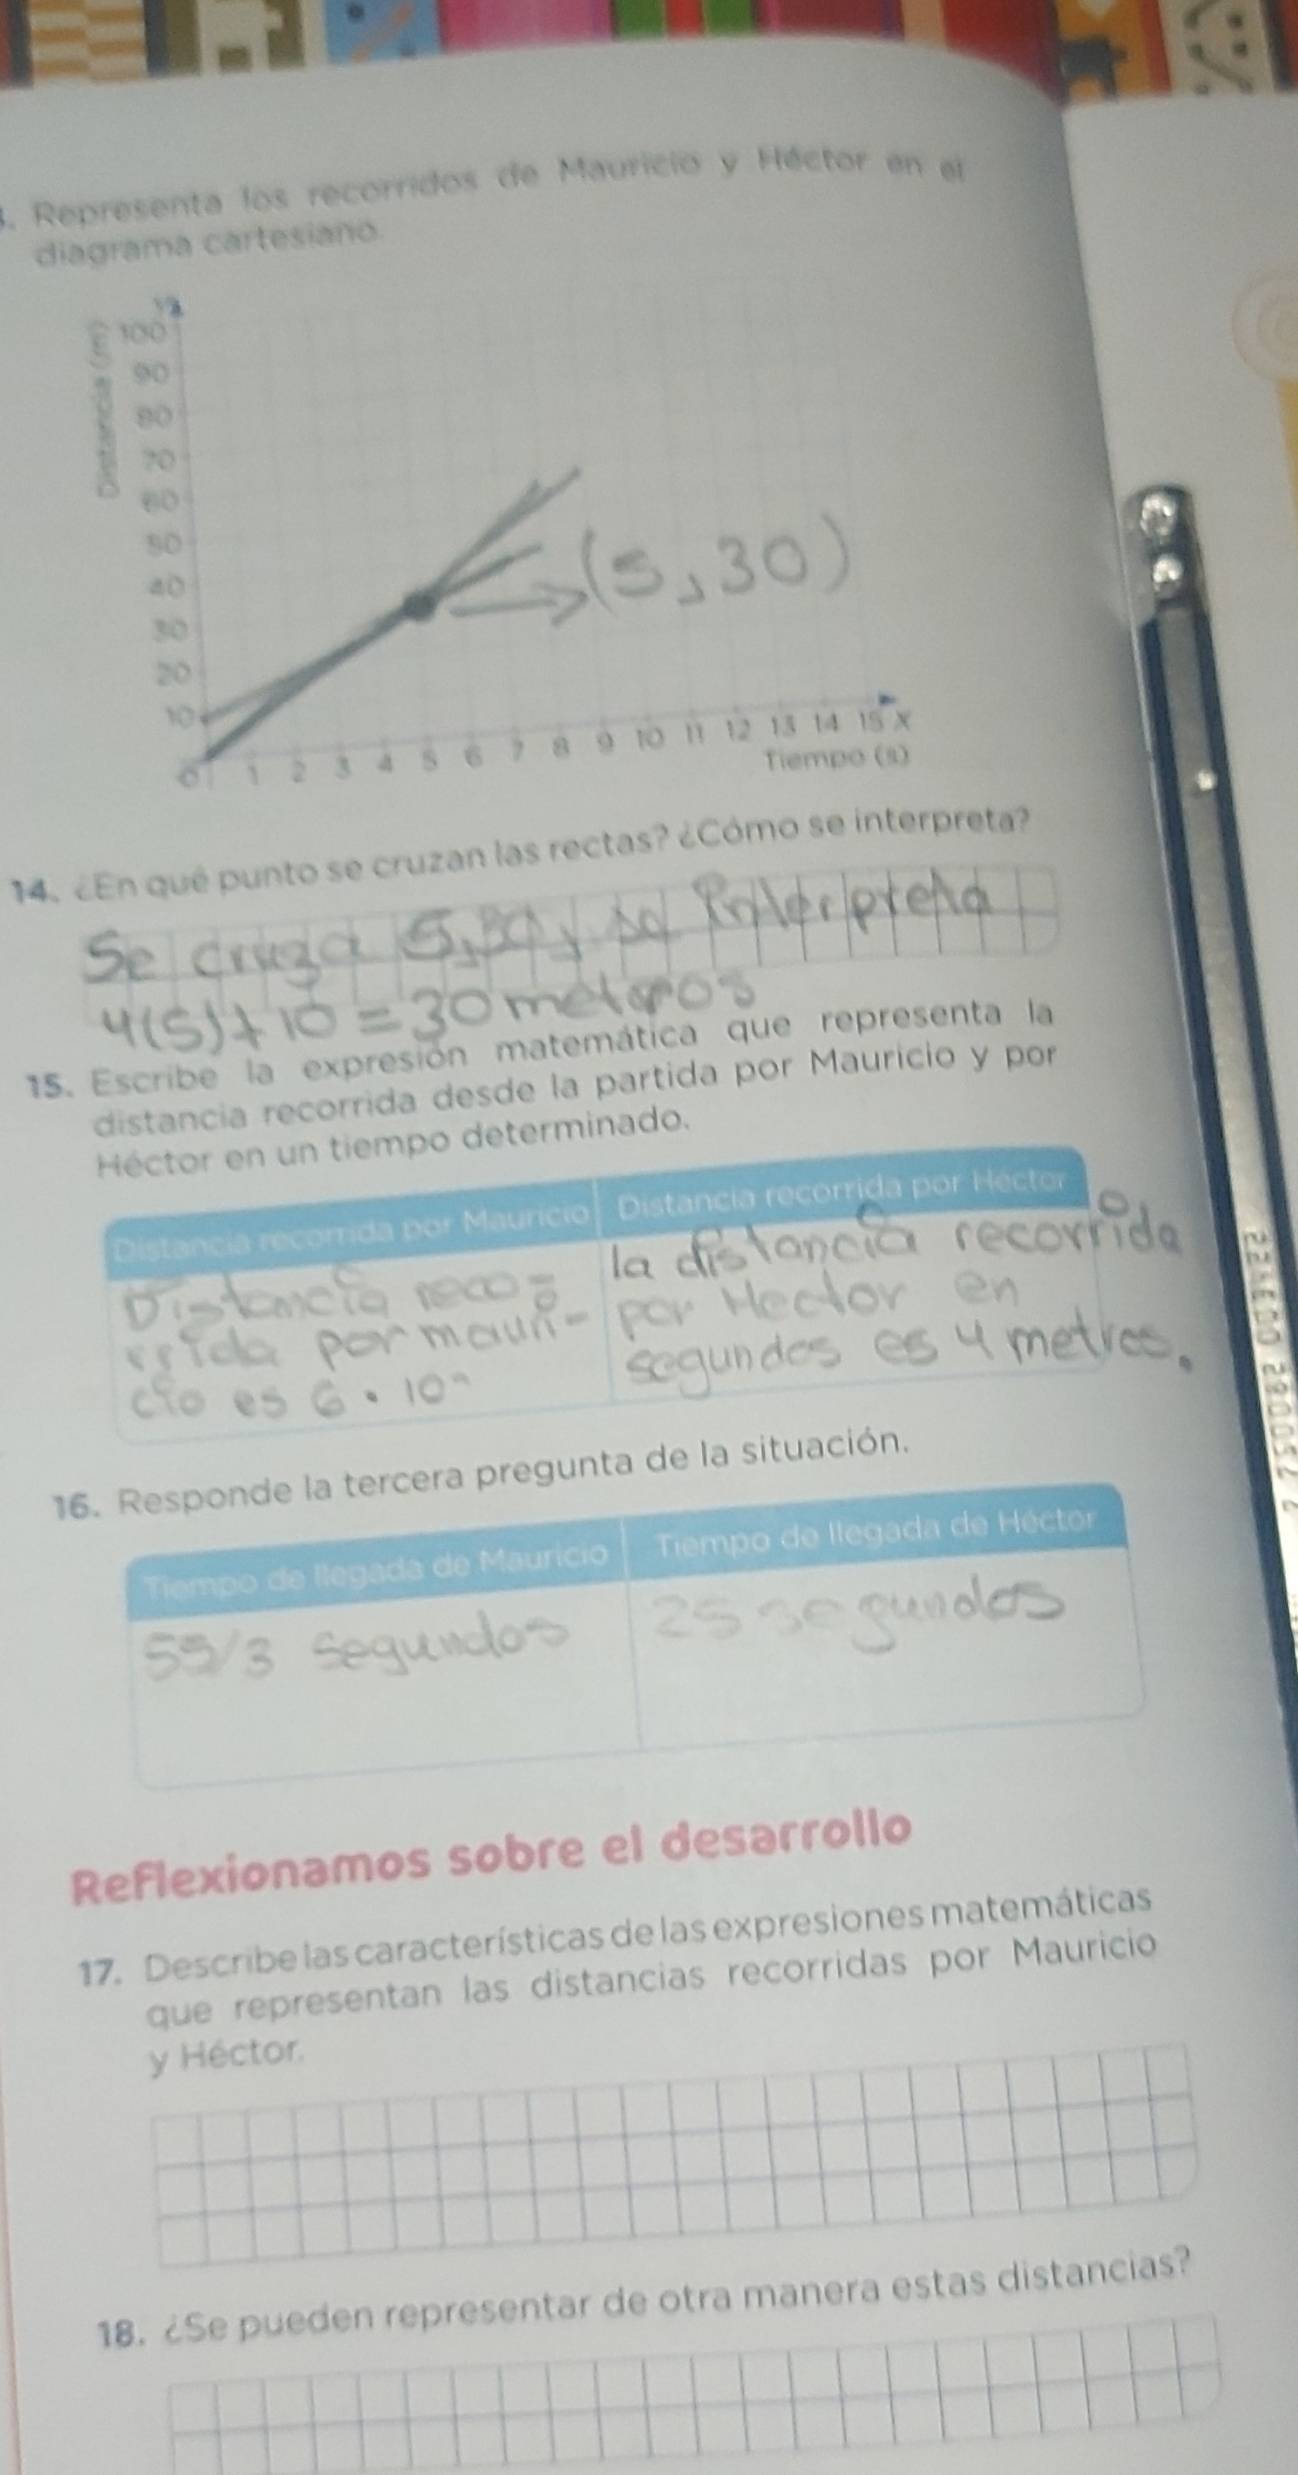 . Representa los recorridos de Mauricio y Héctor en el
diagrama cartesiano.
Y
Distancia (m)
100
90
80
70
60
50
40
30
20
10
(5,30)
0 1 2 3 4 5 6 7 8 9 10 11 12 13 14 15 X
Tiempo (s)
14. ¿En qué punto se cruzan las rectas? ¿Cómo se interpreta?
Se cruza 5,30 y se interpreta
4(5)+10=30 metros
15. Escribe la expresión matemática que representa la
distancia recorrida desde la partida por Mauricio y por
Héctor en un tiempo determinado.
Distancia recorrida por Mauricio
Distancia recorrida por Héctor
Distancia reco=
rrida por mauri-
cio es 6 · 10
la distancia recorrida
por Hector en
segundos es 4 metros.
16. Responde la tercera pregunta de la situación.
Tiempo de llegada de Mauricio
Tiempo de llegada de Héctor
55/3 segundos
25 segundos
Reflexionamos sobre el desarrollo
17. Describe las características de las expresiones matemáticas
que representan las distancias recorridas por Mauricio
y Héctor.
18. ¿Se pueden representar de otra manera estas distancias?